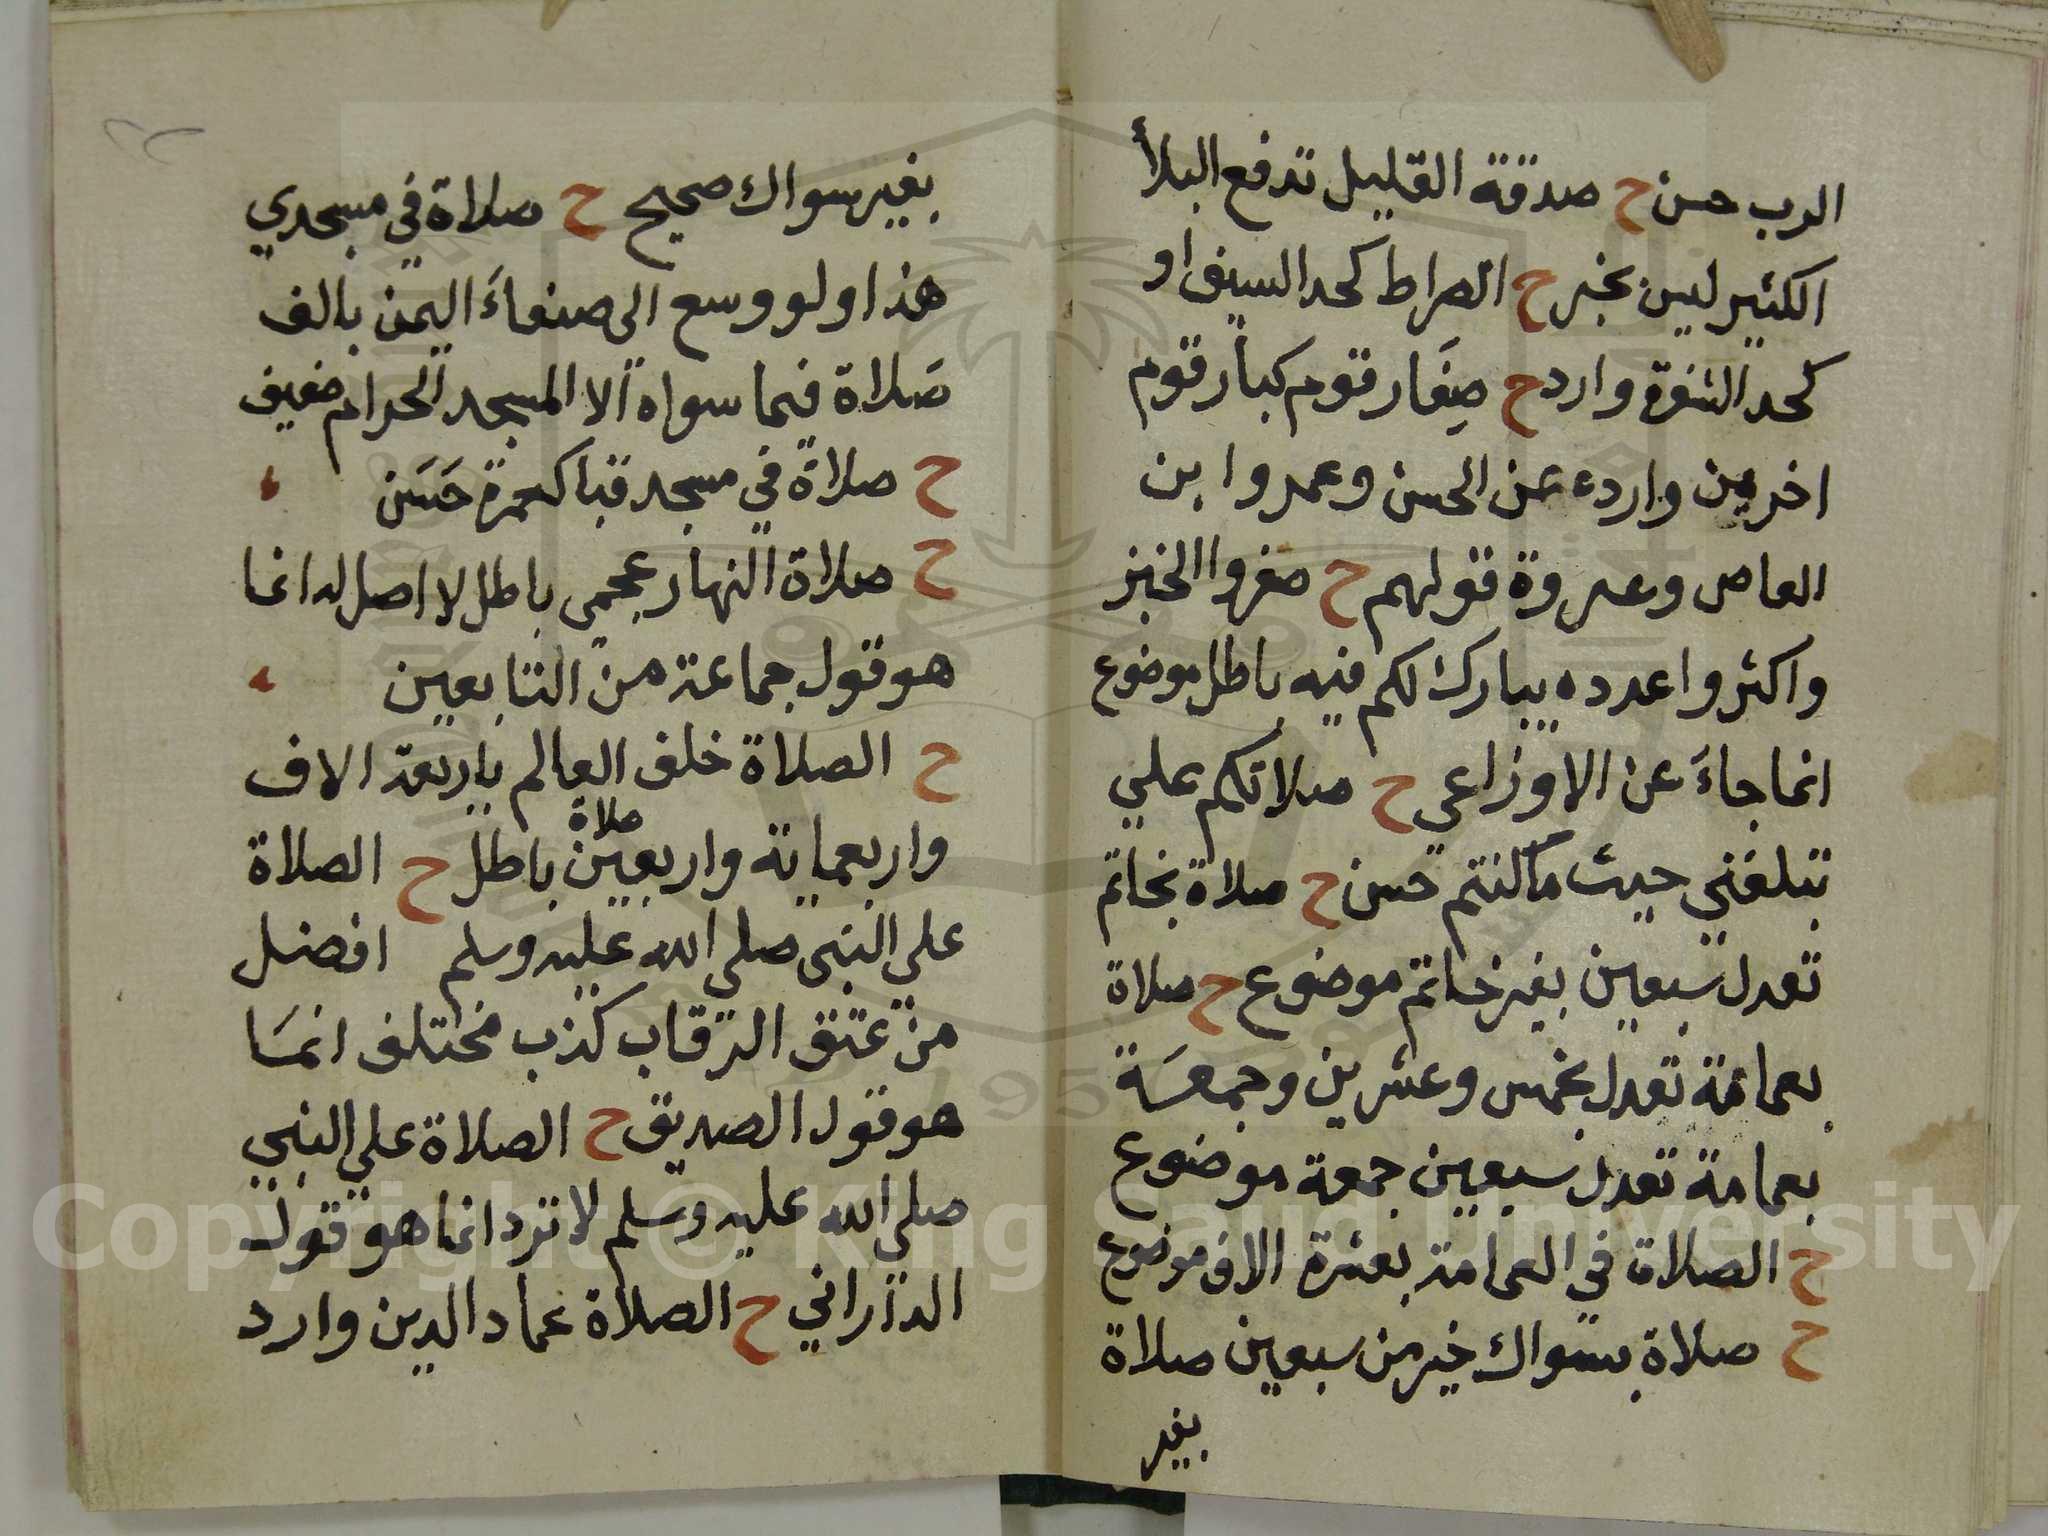 الرب حسن ح صدقة القليل تدفع البلأ
الكثير ليس بخبر ح الصراط كحد السيف او
كحد الشفرة وارد ح صِغَار قوم كبار قوم
اخرين وارد عن الحسن وعمروا بن
العاص وعروة قولهم ح صغروا الخبز
واكثروا عدده يبارك لكم فيه باطل موضوع
انما جاءَ عن الاوزاعي ح صلاتكم علي
تبلغني حيث ما كنتم حسن ح صلاة بخاتم
تعدل سبعين بغير خاتم موضوع ح صلاة
بعمامة تعدل بخمس وعشرين وجمعَة
بعمامة تعدل سبعين جمعة موضوع
ح الصلاة في العمامة بعشرة الاف موضوع
ح صلاة بسواك خير من سبعين صلاة
بغير
بغير سواك صحيح ح صلاة في مسجدي
هذا ولو وسع الى صنعاءَ اليمن بالف
صَلاة فيما سواه الا المسجد الحرام ضعيف
ح صلاة في مسجد قبا كعمرة حَسَن
ح صلاة النهار عجمي باطل لا اصل له انما
هو قول جماعة من التابعين
ح الصلاة خلف العالم باربعة الاف
صلاة
واربعماية واربعين باطل ح الصلاة
على النبي صلي الله عليه وسلم افضل
من عتق الرقاب كذب مختلف انمَا
هو قول الصديق ح الصلاة علي النبي
صلي الله عليه وسلم لا ترد انما هو قول
الداراني ح الصلاة عماد الدين وارد
Copyright © King Saud University
1957